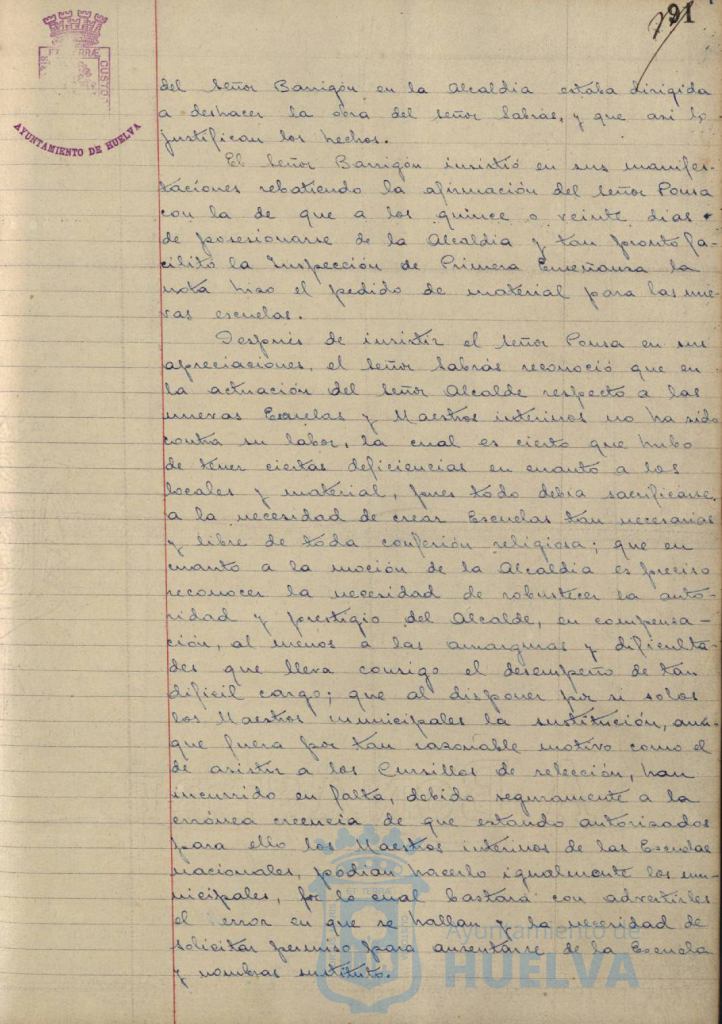 291
AYUNTAMIENTO DE HUELVA
del Señor Barrigón en la Alcaldia estaba dirigida
a deshacer la obra del señor Sabrás, y que asi lo
justifican los hechos.
El Señor Barrigón insistió en sus manifes-
taciones rebatiendo la afirmación del Señor Ponsa
con la de que a los quince o veinte dias
de posesionarse de la Alcaldia y tan pronto fa-
cilitó la Inspección de Primera Enseñanza la
nota hizo el pedido de material para las nue-
vas escuelas.
Después de insistir el Señor Ponsa en sus
apreciaciones, el Señor Sabrás reconoció que en
la actuación del Señor Alcalde respecto a las
nuevas Escuelas y Maestros interinos no ha sido
contra su labor, la cual es cierto que hubo
de tener ciertas deficiencias en cuanto a los
locales y material, pues todo debia sacrificarse
a la necesidad de crear Escuelas tan necesarias
y libre de toda confesión religiosa; que en
cuanto a la moción de la Alcaldia es preciso
reconocer la necesidad de robustecer la auto-
ridad y prestigio del Alcalde, en compensa-
ción, al menos a las amarguras y dificulta-
des que lleva consigo el desempeño de tan
dificil cargo; que al disponer por si solos
los Maestros municipales la sustitución, aun-
que fuera por tan razonable motivo como el
de asistir a los Cursillos de selección, han
incurrido en falta, debido seguramente a la
errónea creencia de que estando autorizados
para ello los Maestros interinos de las Escuelas
nacionales, podian hacerlo igualmente los mu-
nicipales, por lo cual bastará con advertirles
el error en que se hallan y la necesidad de
solicitar permiso para ausentarse de la Escuela
y nombrar sustituto.
Ayuntamiento de
HUELVA